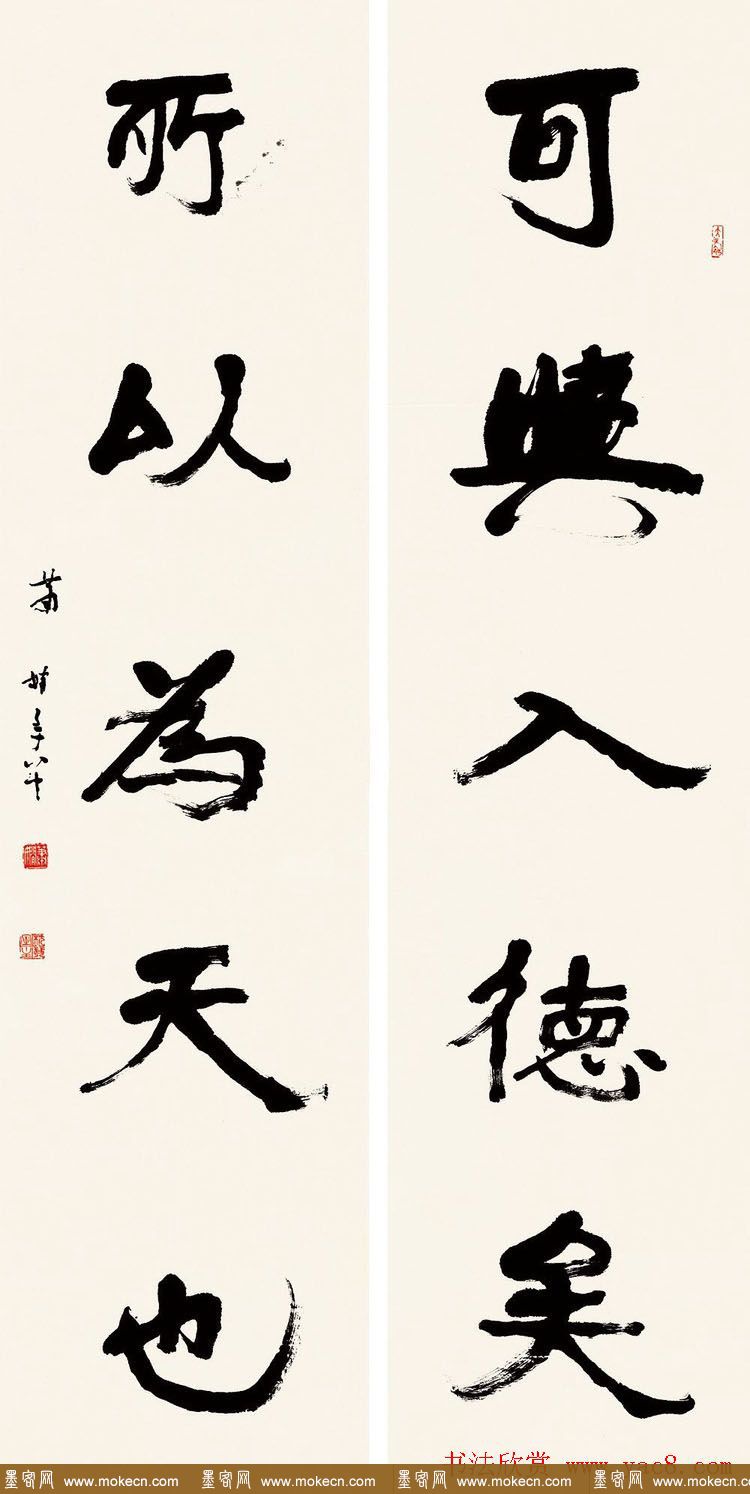 可與入德矣
所以為天也
萧娴年八十
书法欣赏 www.yac8.com
墨客网 www.mokecn.com 墨客网 www.mokecn.com 墨客网 www.mokecn.com 墨客网 www.mokecn.com